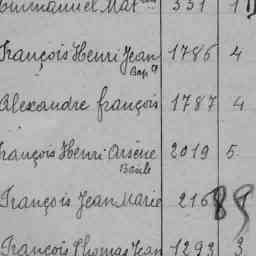 Emmanuel Mat 331 1
François Henri Jean 1786 4
Bap
Alexandre françois 1787 4
François Henri Arsène 2019 5.
Basile
François Jean Marie 216
89
François Thomas Jean 1293 3